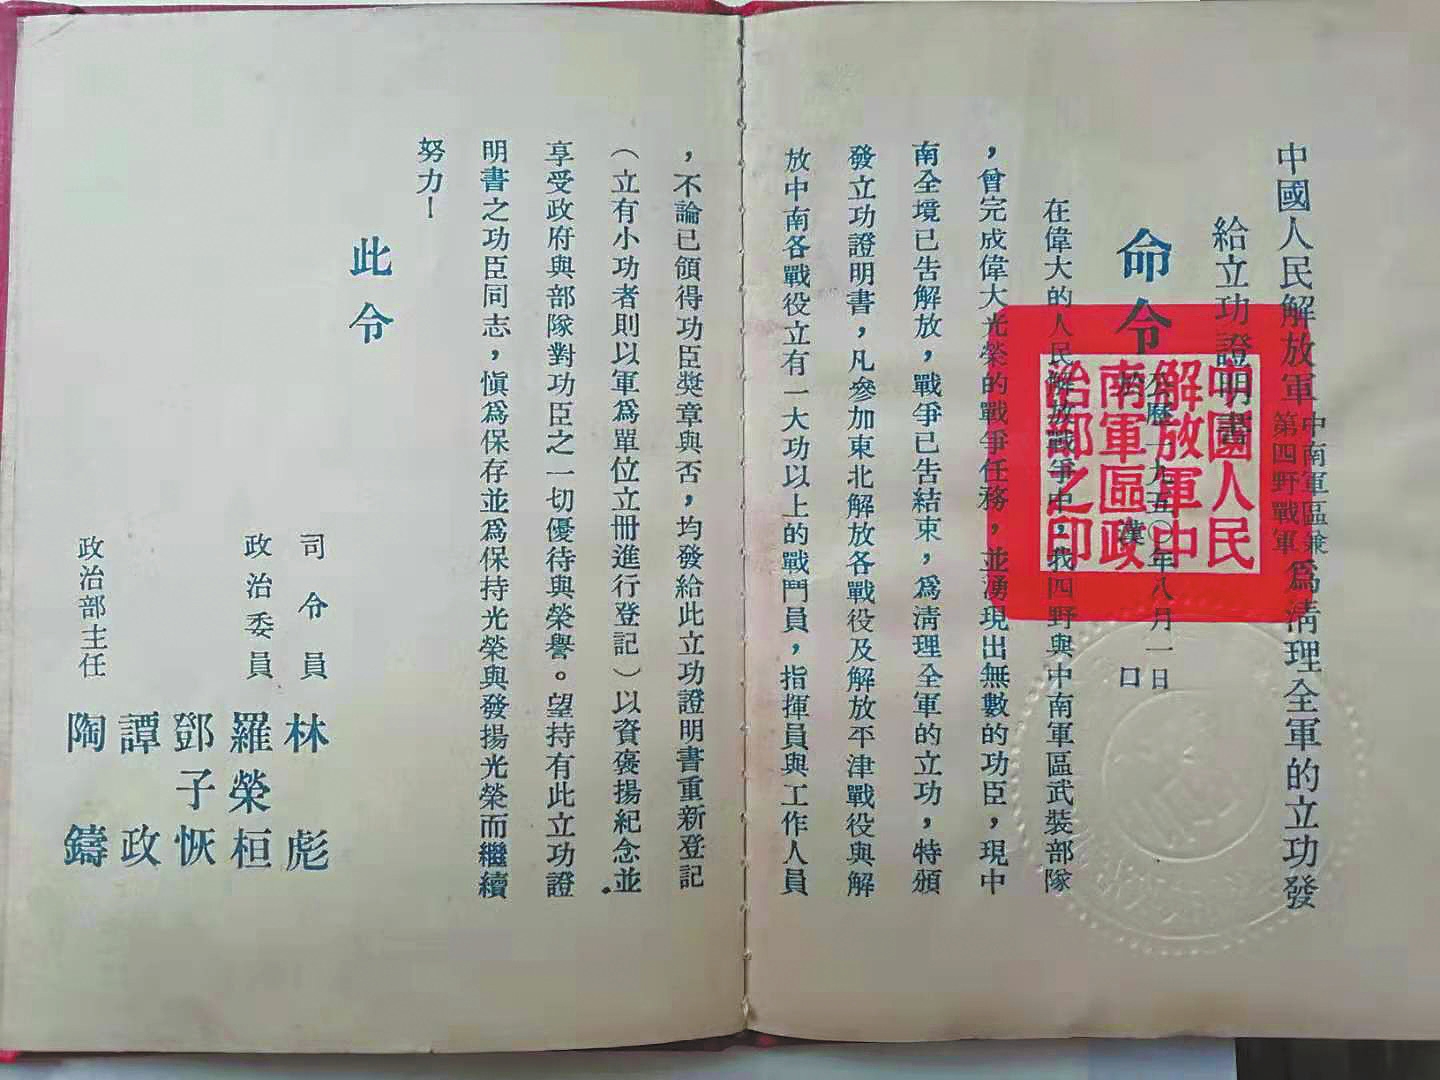 中國人民解放軍中南軍區兼第四野戰軍爲淸理全軍的立功發
給立功證明書
命令
公歷一九五〇年八月一日
於漢口
在偉大的人民解放戰爭中，我四野與中南軍區武裝部隊
，曾完成偉大光榮的戰爭任務，並湧現出無數的功臣，現中
南全境已告解放，戰爭已告結束，爲淸理全軍的立功，特頒
發立功證明書，凡參加東北解放各戰役及解放平津戰役與解
放中南各戰役立有一大功以上的戰鬥員，指揮員與工作人員
，不論已領得功臣奬章與否，均發給此立功證明書重新登記
（立有小功者則以軍爲單位立冊進行登記）以資褒揚紀念並
享受政府與部隊對功臣之一切優待與榮譽。望持有此立功證
明書之功臣同志，愼爲保存並爲保持光榮與發揚光榮而繼續
努力！
此令
司令員 林彪
政治委員 羅榮桓
鄧子恢
譚政
政治部主任 陶鑄
中國人民
解放軍中
南軍區政
治部之印